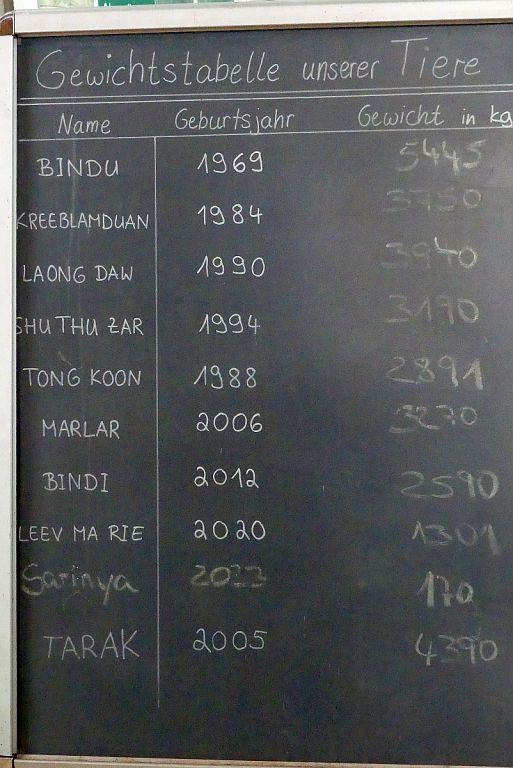 Gewichtstabelle unserer Tiere
Name Geburtsjahr Gewicht in kg
BINDU 1969 5445
KREEBLAMDUAN 1984 3750
LAONG DAW 1990 3940
SHU THU ZAR 1994 3190
TONG KOON 1988 2891
MARLAR 2006 3270
BINDI 2012 2590
LEEV MA RIE 2020 1301
Sarinya 2023 170
TARAK 2005 4390